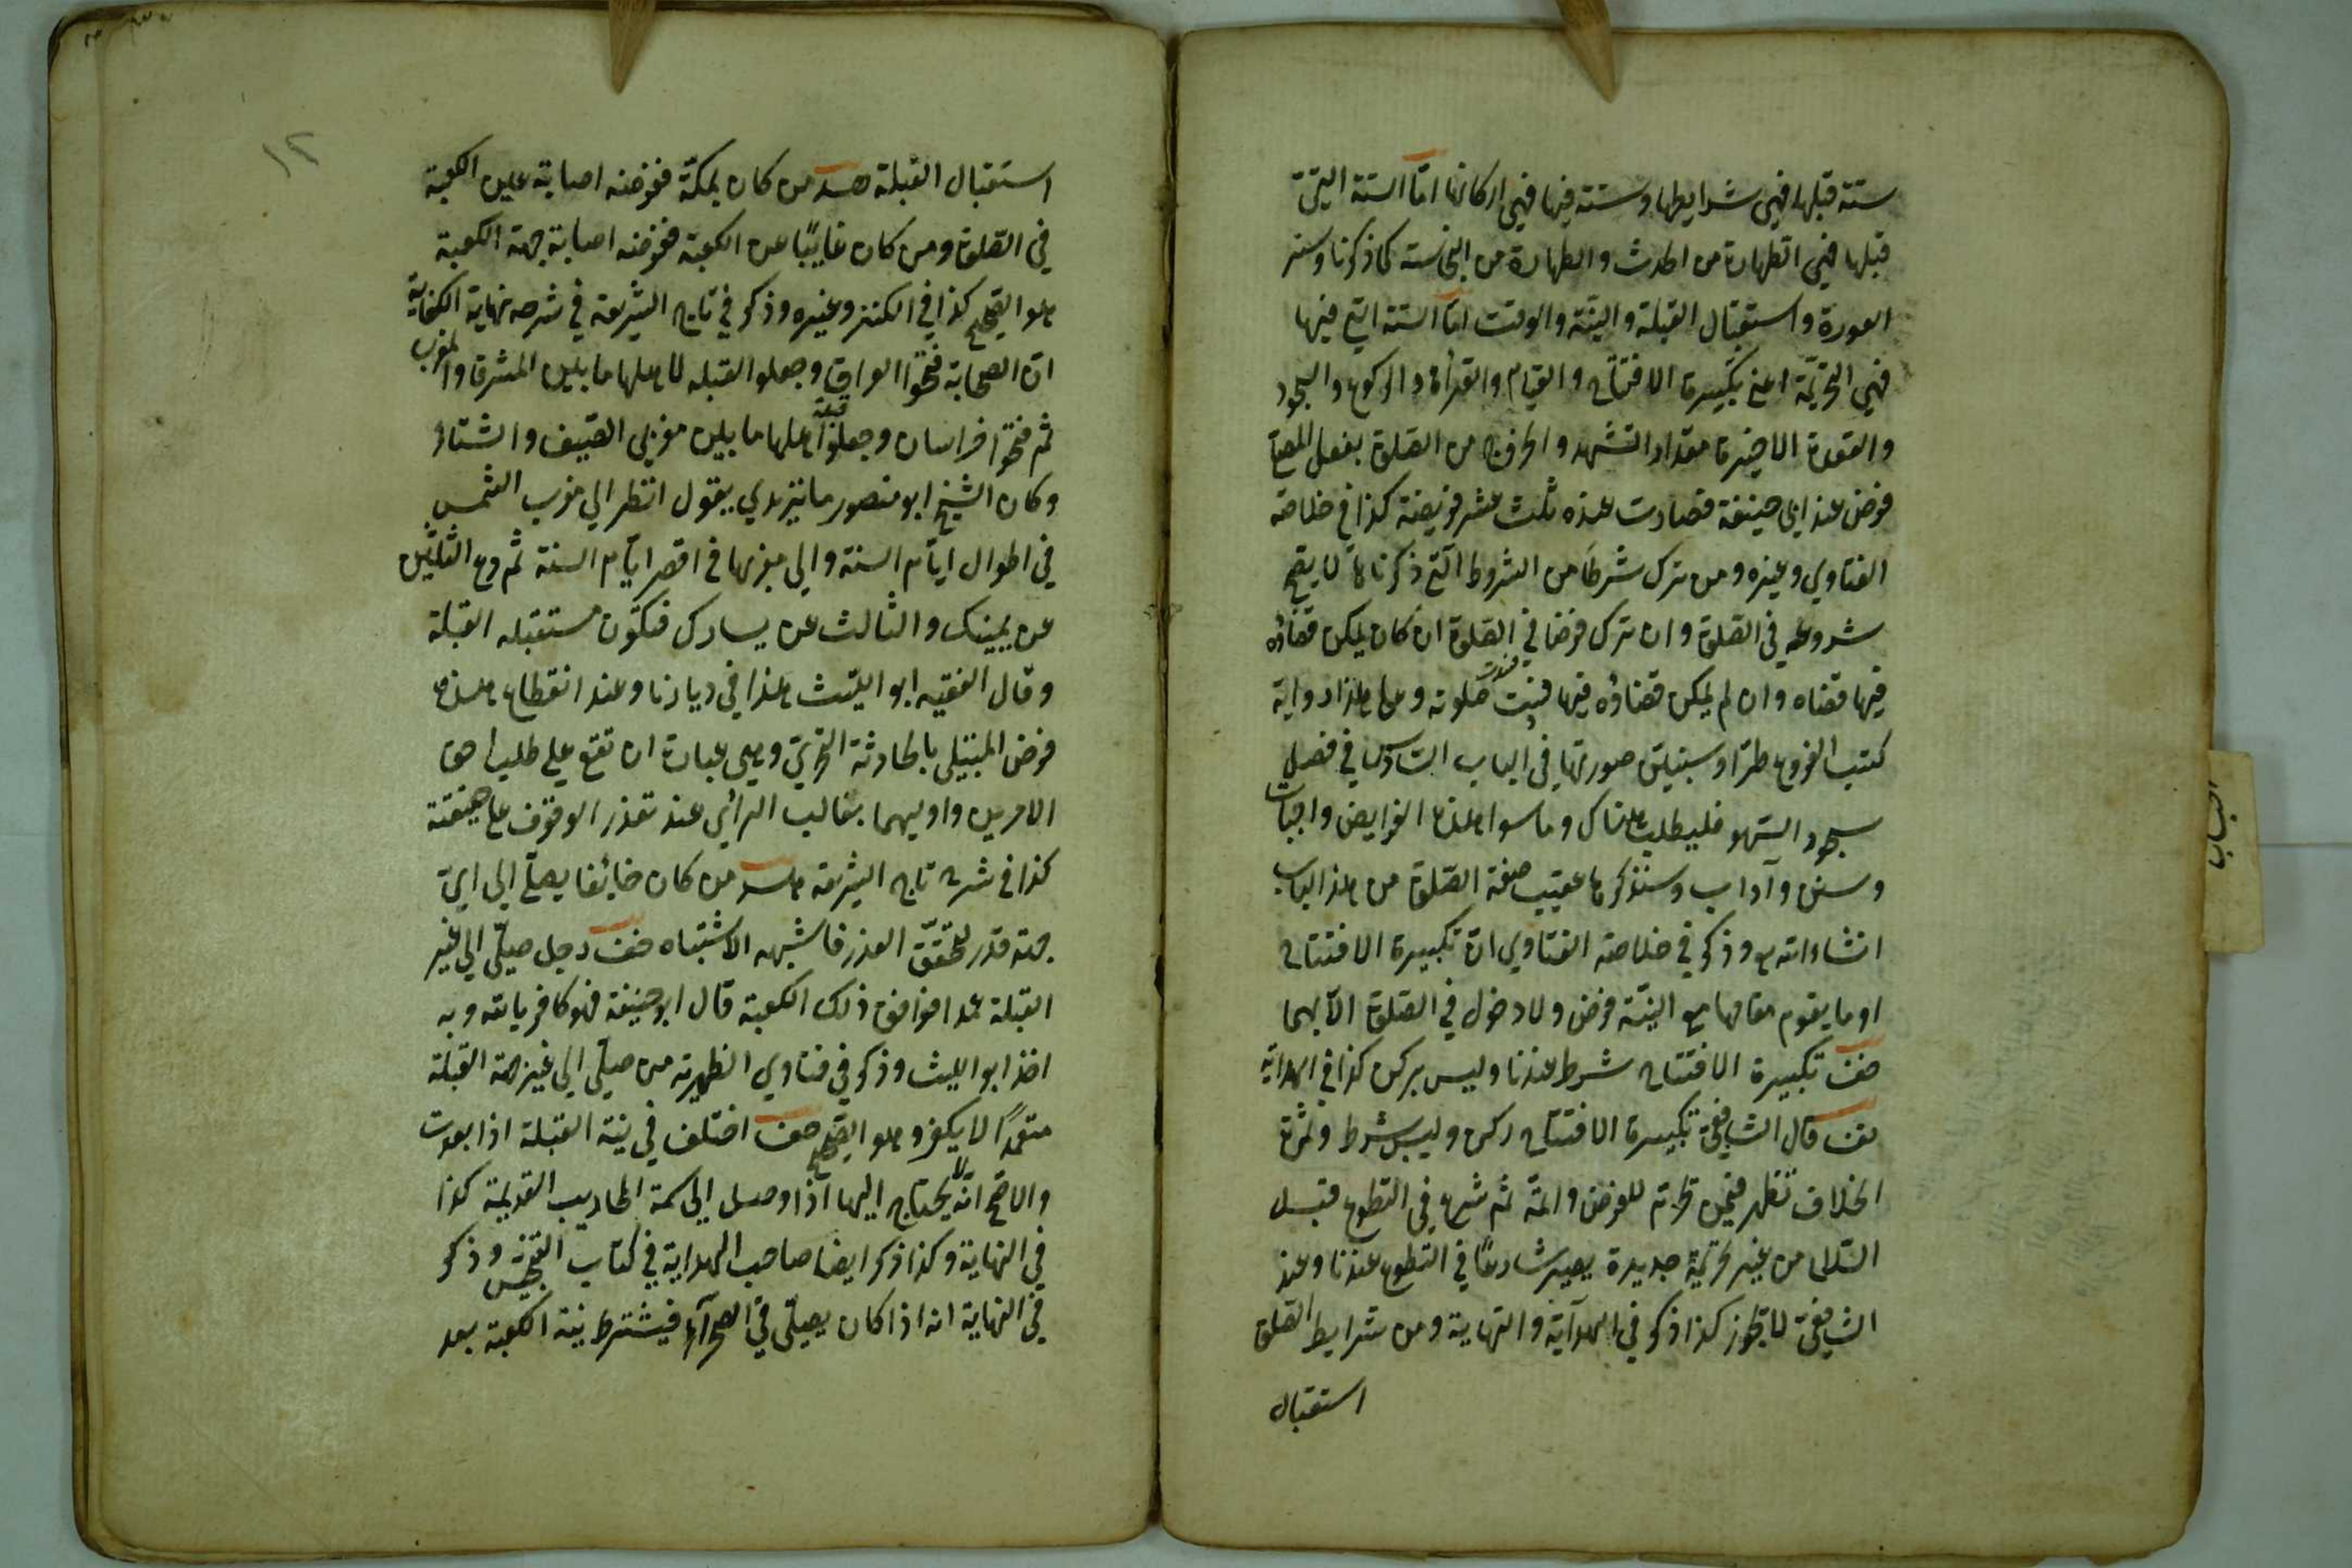 ستة قبلها فهي شرايطها وستة فيها فهي اركانها امّا الستة التي
قبلها فهي الطهارة من الحدث والطهارة من النجاسة كما ذكرنا وستر
العورة واستقبال القبلة والنيّة والوقت امّا الستة التي فيها
فهي التحريمة اعني تكبيرة الافتتاح والقيام والقرأة والركوع والسجود
والقعدة الاخيرة مقدار التشهد والخروج من الصلوة بفعل المصلي
فرض عند ابي حنيفة فصارت عنده ثلث عشر فريضة كذا في خلاصة
الفتاوي وغيره ومن ترك شرطًا من الشروط التي ذكرناها لا يصح
شروعه في الصلوة وان ترك فرضا في الصلوة ان كان يمكن قضاؤه
فيها قضاه وان لم يمكن قضاؤه فيها فسدت صلوته وعلى هذا رواية
كتب الفروع طرّا وسنبيّن صورتها في الباب السادس في فصل
سجود السّهو فليطلب هناك وما سوا هذه الفرايض واجبات
وسنن وآداب وسنذكرها عقيب صفة الصّلوة من هذا الباب
انشاء الله تع وذكر في خلاصة الفتاوي انّ تكبيرة الافتتاح
او ما يقوم مقامها مع النيّة فرض ولا دخول في الصّلوة الّا بهما
صف تكبيرة الافتتاح شرط عندنا وليس بركن كذا في الهداية
يف قال الشافعي تكبيرة الافتتاح ركن وليس بشرط وثمرة
الخلاف تظهر فيمن تحرّم للفرض واتمّه ثم شرع في التطوع قبل
السّلام من غير تحريمة جديدة يصير شارعًا في التطوع عندنا وعند
الشافعي لا يجوز كذا ذكر في الهداية والنهاية ومن شرايط الصّلوة
استقبال
١٢
استقبال القبلة هد من كان بمكّة ففرضه اصابة عين الكعبة
في الصّلوة ومن كان غايبًا عن الكعبة ففرضه اصابة جهة الكعبة
هو الصّحيح كذا في الكنز وغيره وذكر في تاج الشريعة في شرحه نهاية الكفاية
انّ الصحابة فتحوا العراق وجعلوا القبلة لاهلها ما بين المشرق والمغرب
ثم فتحوا خراسان وجعلوا قبلة اهلها ما بين مغربي الصّيف والشتاء
وكان الشيخ ابو منصور ماتيزيدي يقول انظر الي مغرب الشمس
في اطوال ايّام السنة والي مغربها في اقصر ايّام السنة ثم دع الثلثين
عن يمينك والثالث عن يسارك فتكون مستقبله القبلة
وقال الفقيه ابو الليث هذا في ديارنا وعند انقطاع هذه
فرض المبتلي بالحادثة التحرّي وهي عبارة ان تقع علي طلب احق
الامرين واوليهما بغالب الرائ عند تعذر الوقوف على حقيقته
كذا في شرح تاج الشريعة هد من كان خائفا يصلّي الي ايّ
جهة قدر لتحقّق العذر فاشبهه الاشتباه صف رجل صلّي الي غير
القبلة عمدا فوافق ذلك الكعبة قال ابو حنيفة فهو كافر بالله وبه
اخذ ابو الليث وذكر في فتاوي الظهيرية من صلّي الي غير جهة القبلة
متعمّدًا لا يكفر وهو الصّحيح صف اختلف في نيّة القبلة اذا بعدت
والاصح انّه لا يحتاج اليها اذا وصل الي سمة المحاريب القديمة كذا
في النهاية وكذا ذكر ايضا صاحب الهداية في كتاب التجنيس وذكر
في النهاية انه اذا كان يصلّي في الصحرآء فيشترط نيّة الكعبة بعد